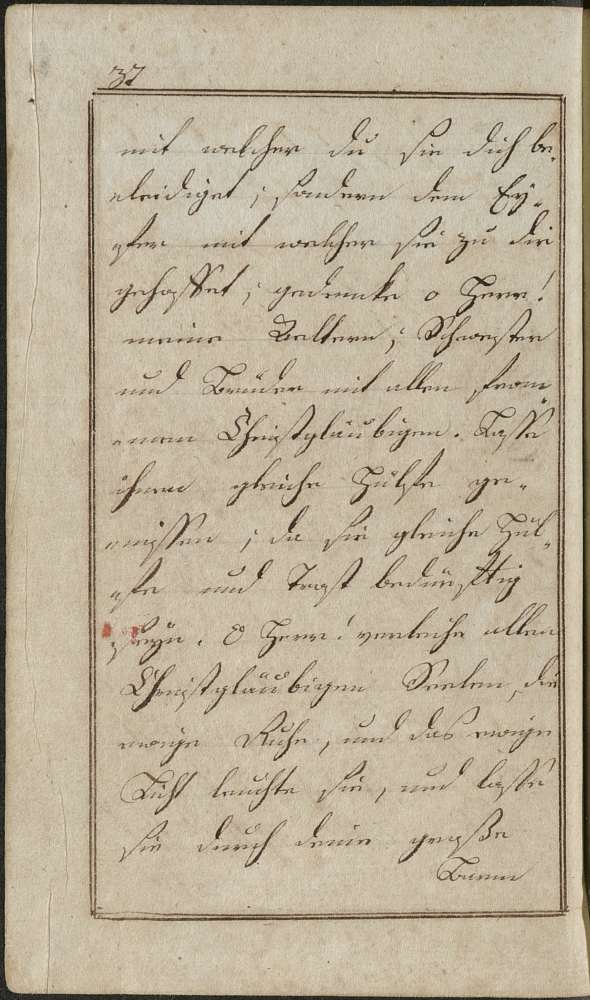 37
mit welcher du sie dich be„
„leidiget; sondern dem Ey„
„fer mit welcher sie zu dir
gehoffet; gedencke o Herr!
meine Ältern; Schwester
und Brüder mit allen from„
„men Christgläubigen. Lasse
ihnen gleiche Hülfe ge„
„niessen; da sie gleiche Hül„
„fe und Trost bedürfftig
seyn. O Herr! verleihe allen
Christgläubigen Seelen, die
ewige Ruhe, und das ewige
Licht leuchte sie, und lasse
sie durch deine große
Barm